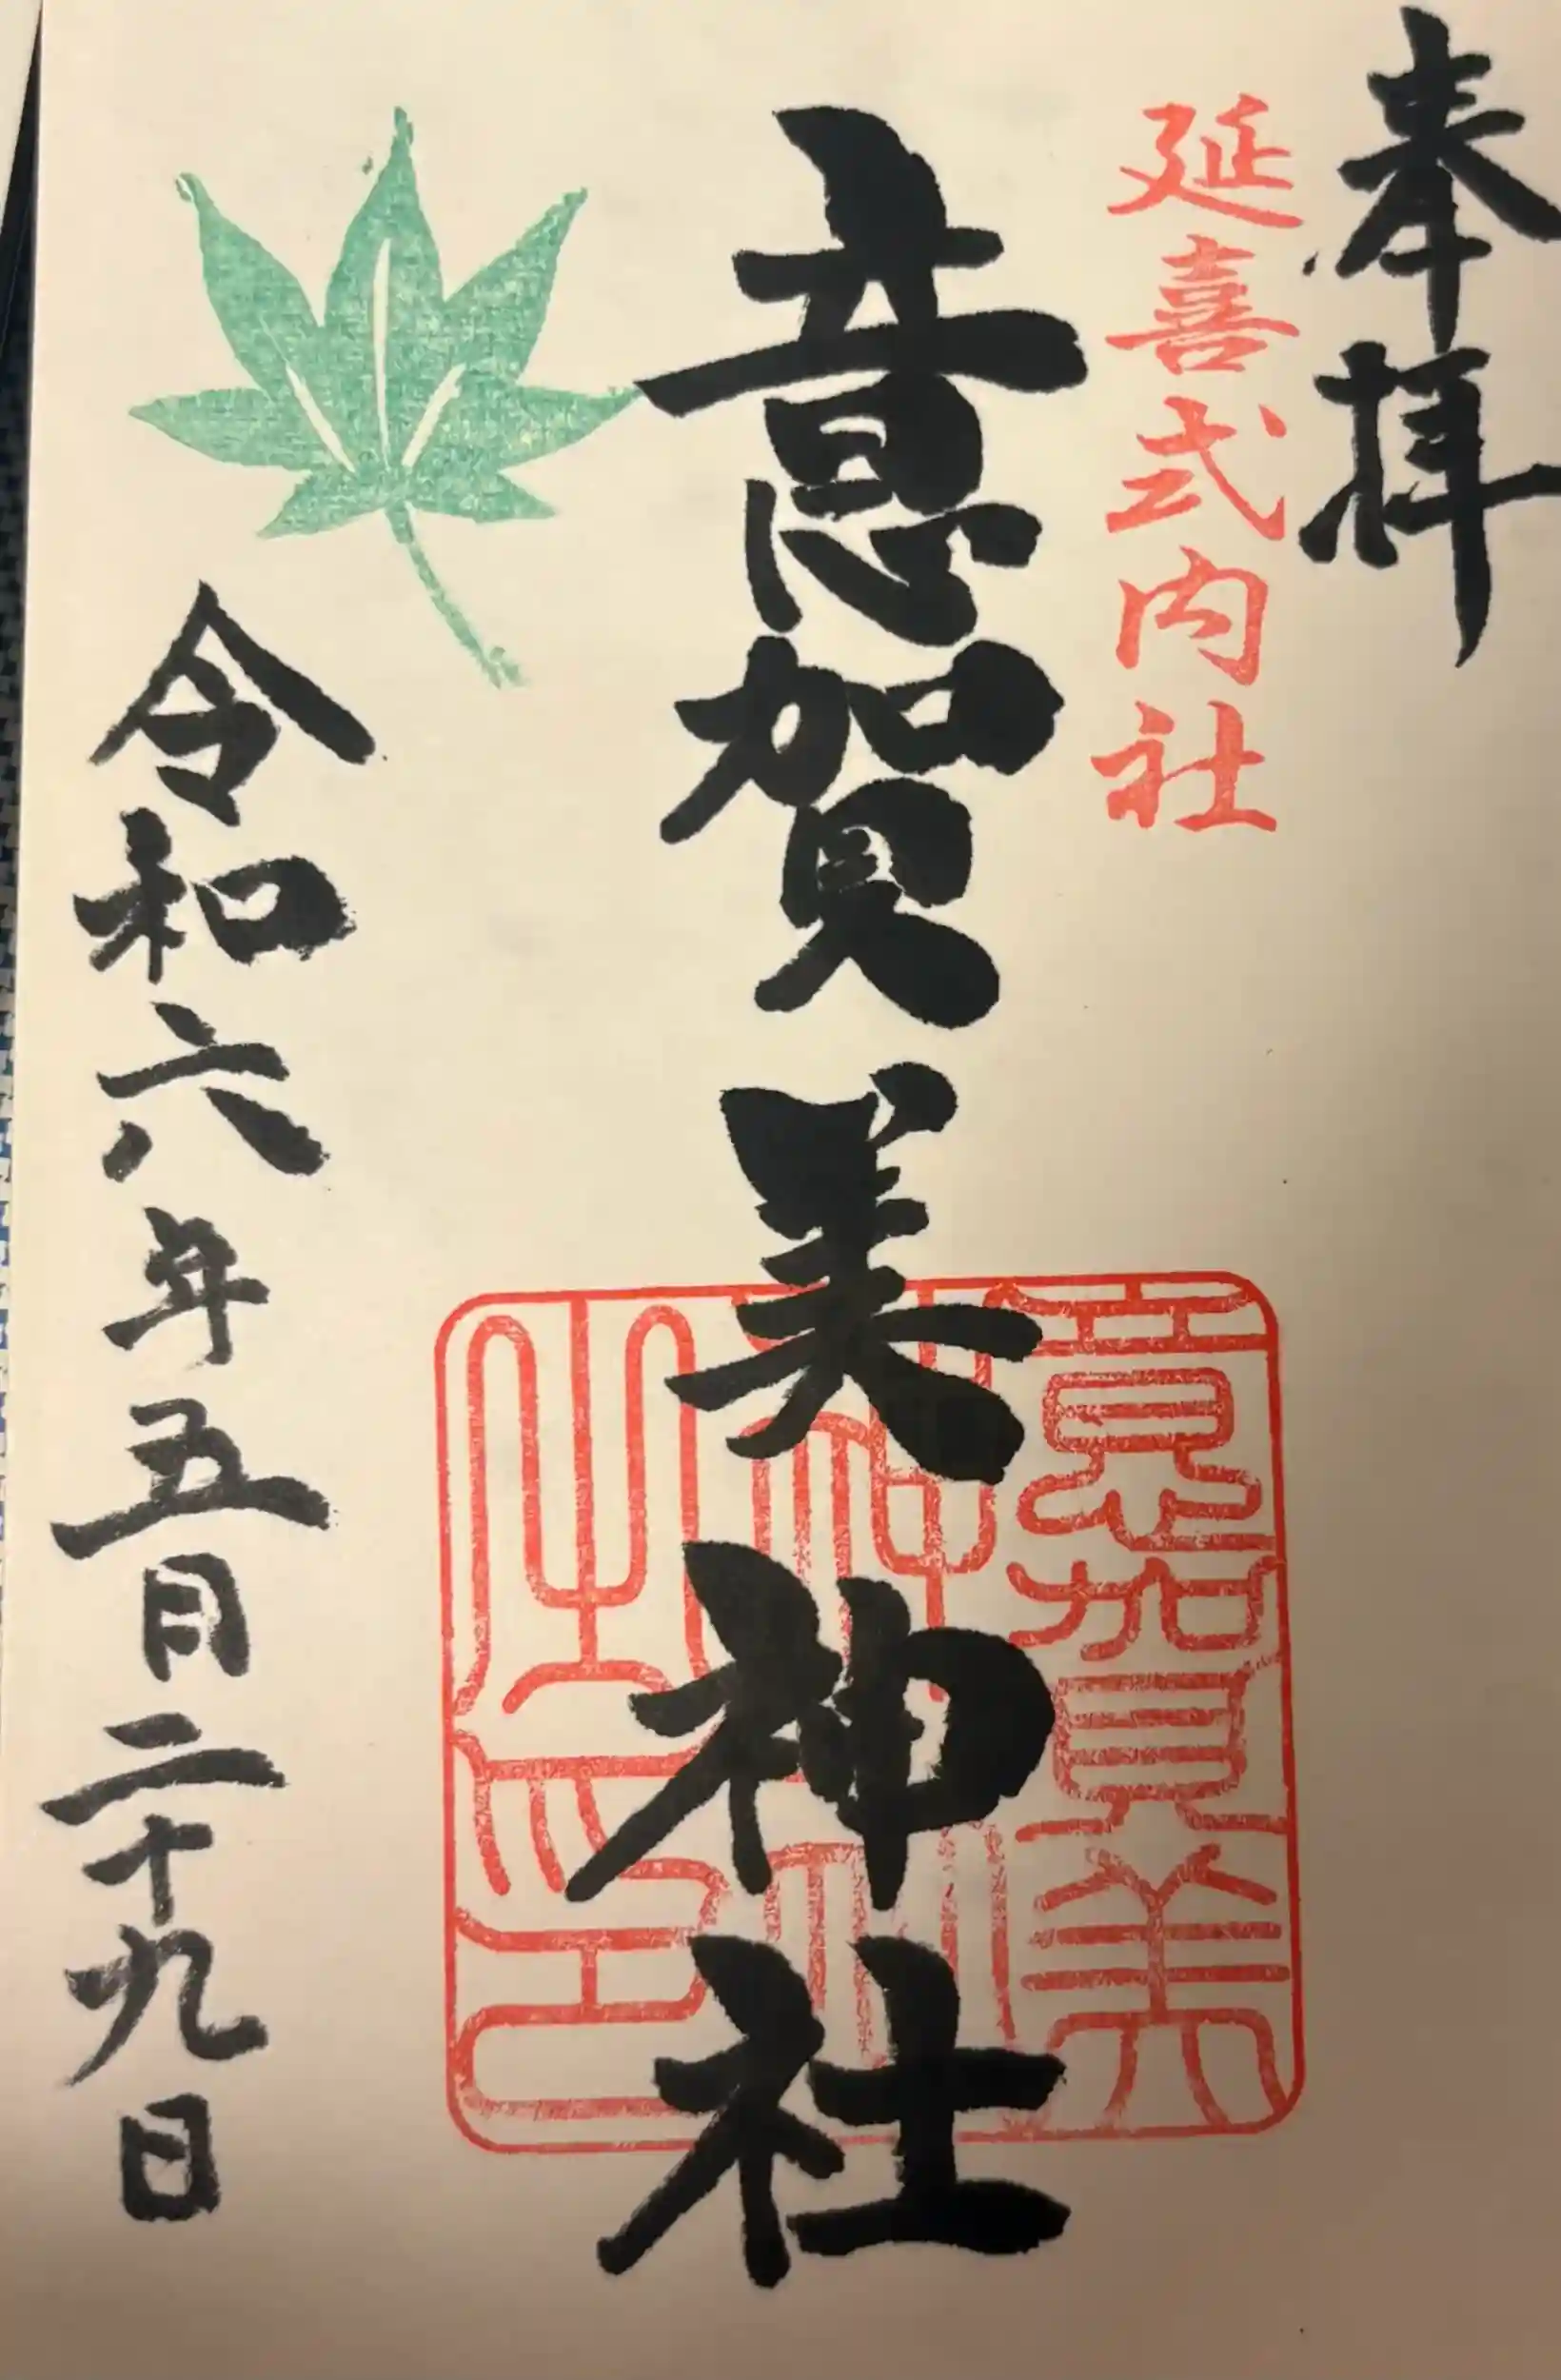 奉拝
延喜式内社
意賀美神社
意賀美
神社
之印
令和六年五月二十九日